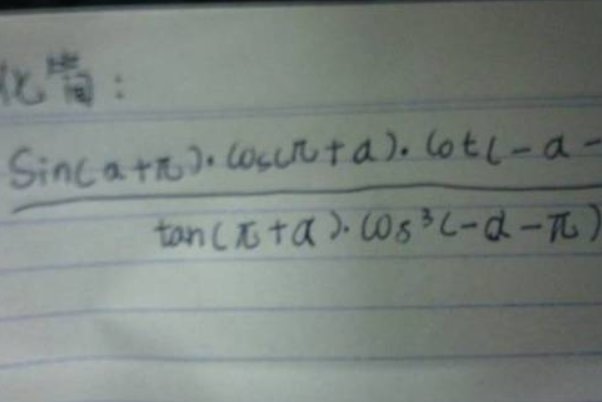 化简:
Sin(a+π)·Cos(π+a)·Cot(-a-
tan(π+a)·Cos³(-a-π)